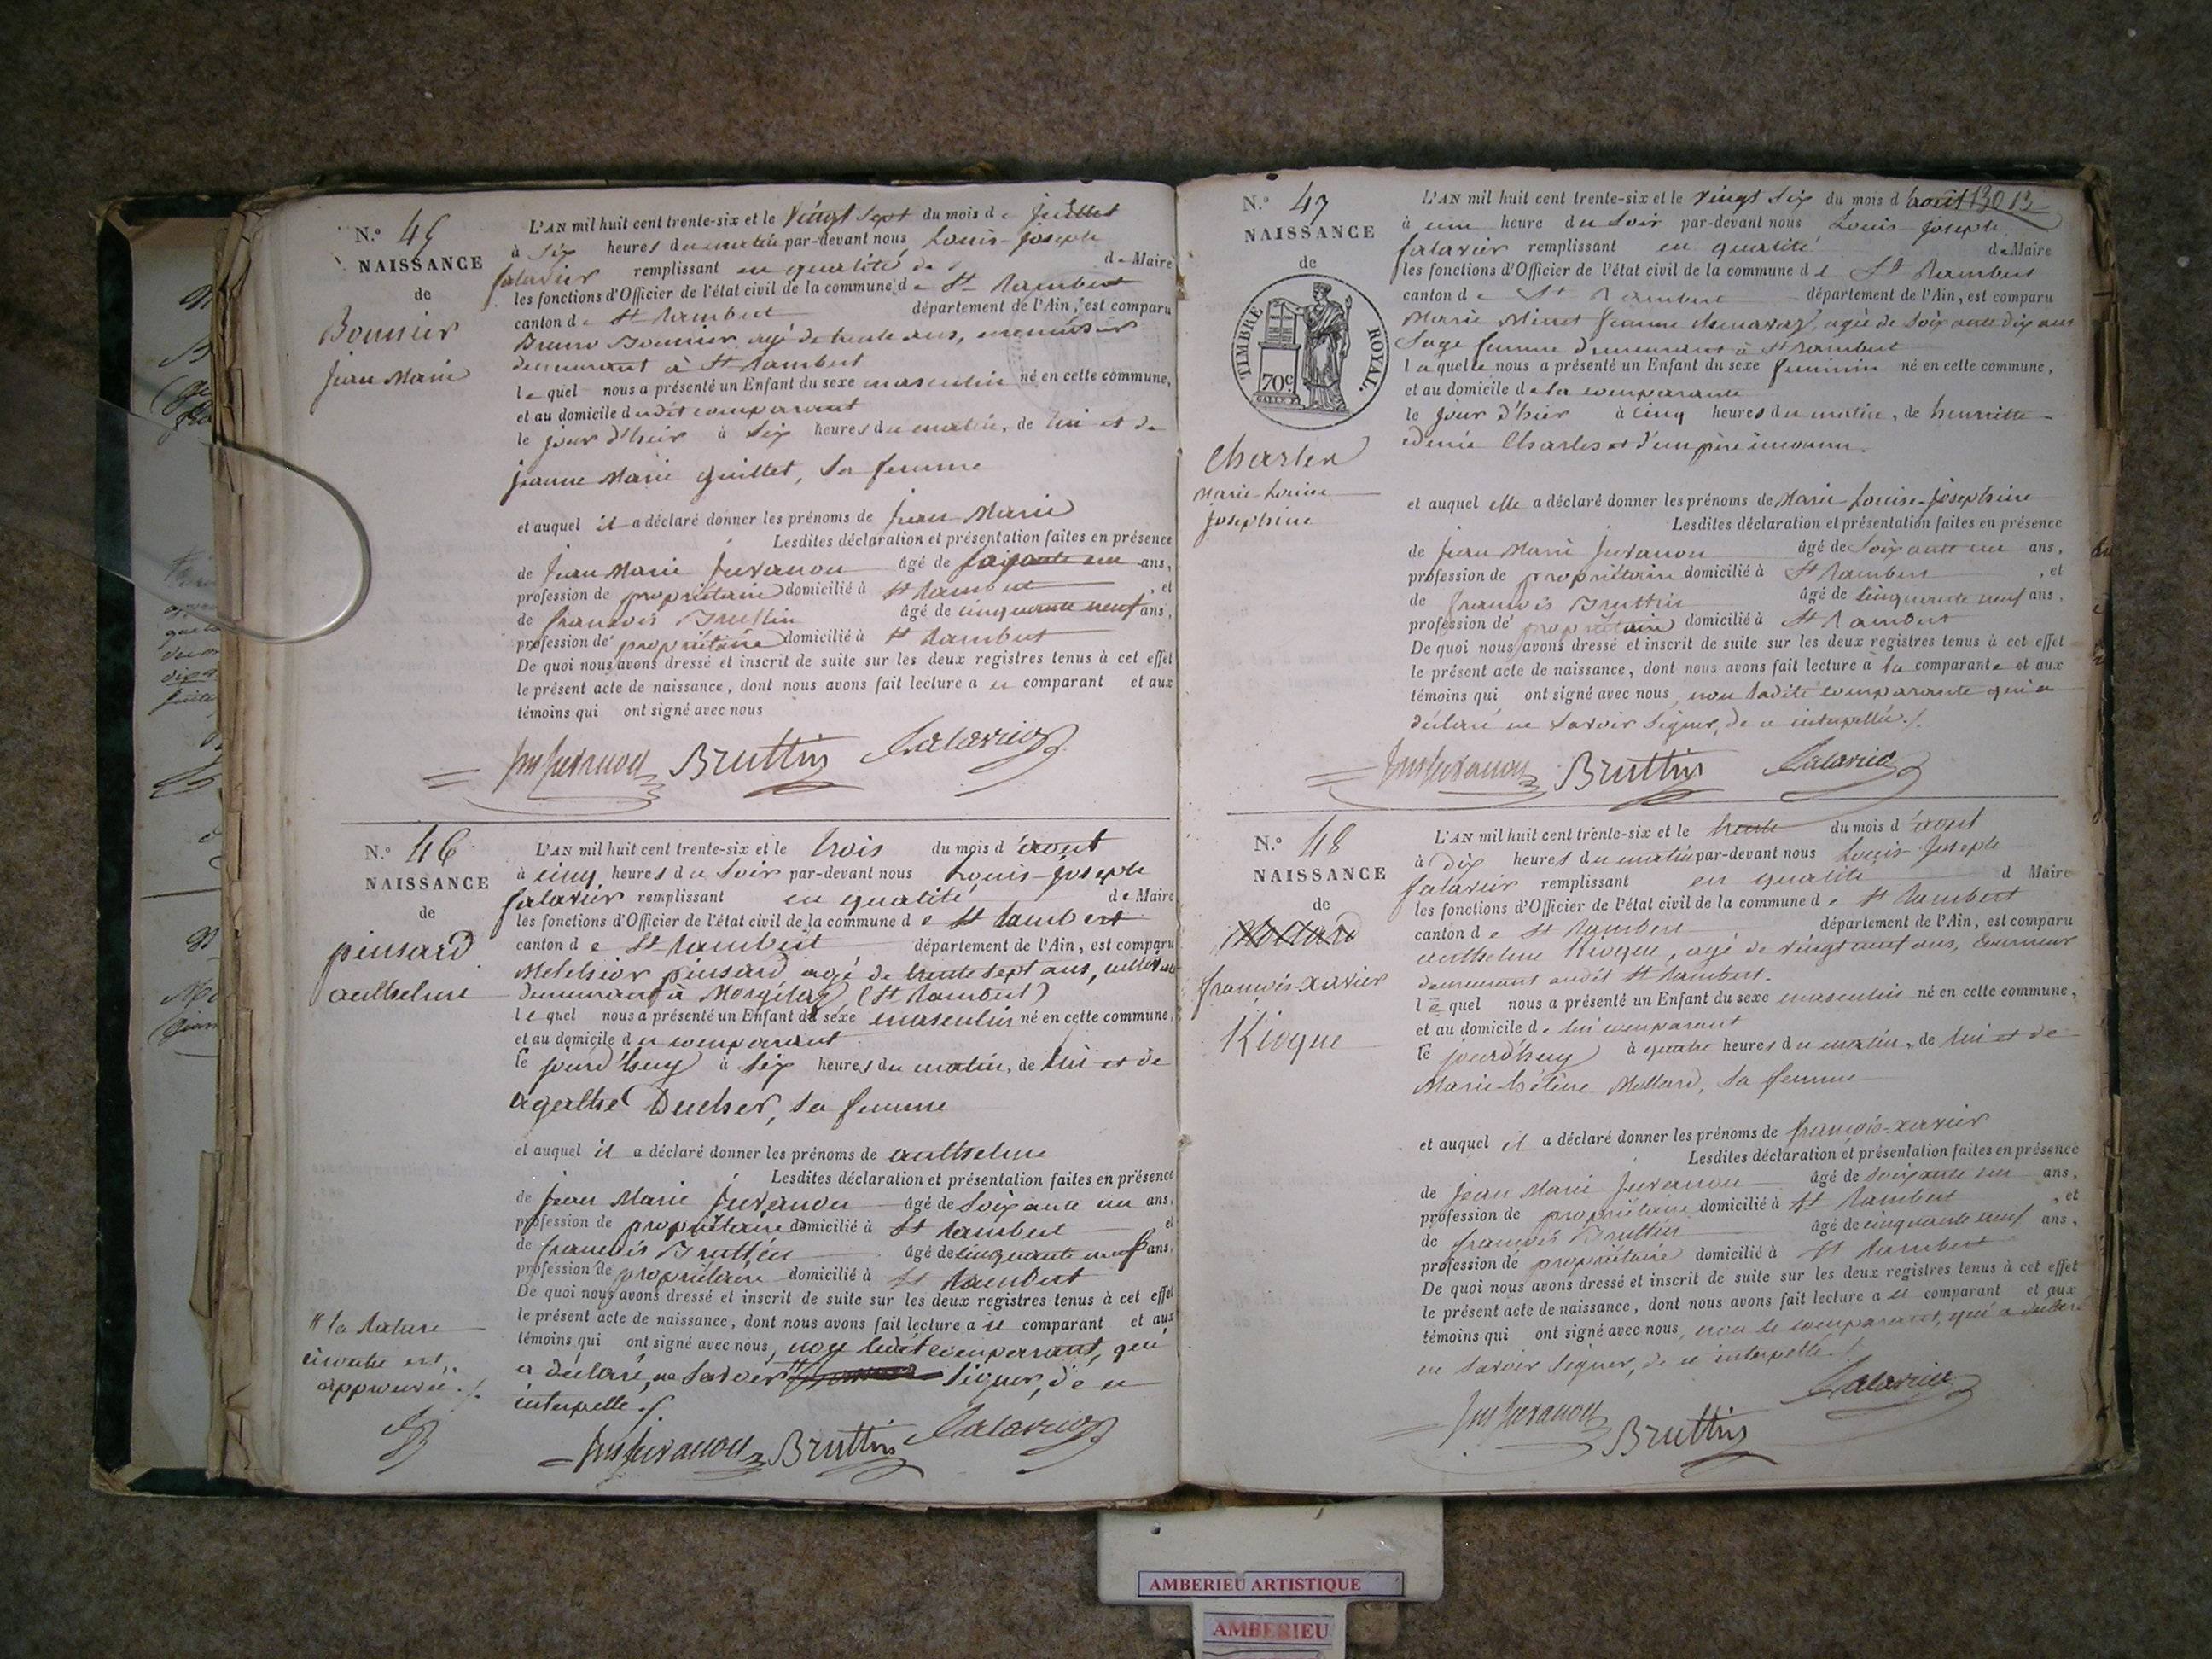 N.º 45
NAISSANCE
de
Bonnier
Jean Marie
L'AN mil huit cent trente-six et le vingt sept du mois de juillet
à six heures du matin par-devant nous Louis-Joseph
Salavier remplissant en qualité de de Maire
les fonctions d'Officier de l'état civil de la commune de St Rambert
canton de St Rambert département de l'Ain, est comparu
Bruno Bonnier agé de trente ans, menuisier
demeurant à St Rambert
lequel nous a présenté un Enfant du sexe masculin né en cette commune,
et au domicile dudit comparant
le jour d'hier à six heures du matin, de lui et de
jeanne Marie Guillet, sa femme
et auquel il a déclaré donner les prénoms de Jean Marie
Lesdites déclaration et présentation faites en présence
de Jean Marie Juvanon âgé de soixante un ans,
profession de propriétaire domicilié à St Rambert, et
de françois Bruttin âgé de cinquante neuf ans,
profession de propriétaire domicilié à St Rambert
De quoi nous avons dressé et inscrit de suite sur les deux registres tenus à cet effet
le présent acte de naissance, dont nous avons fait lecture au comparant et aux
témoins qui ont signé avec nous
Juvanon Bruttin Salavier
N.º 46
NAISSANCE
de
pinsard
anthelme
L'AN mil huit cent trente-six et le trois du mois d'aout
à cinq heures du soir par-devant nous Louis-Joseph
Salavier remplissant en qualité de Maire
les fonctions d'Officier de l'état civil de la commune de St Rambert
canton de St Rambert département de l'Ain, est comparu
Melchior pinsard agé de trente sept ans,
demeurant à (St Rambert)
lequel nous a présenté un Enfant du sexe masculin né en cette commune,
et au domicile du comparant
le jourd'huy à six heures du matin, de lui et de
agathe Ducher, sa femme
et auquel il a déclaré donner les prénoms de anthelme
Lesdites déclaration et présentation faites en présence
de Jean Marie Juvanon âgé de soixante un ans,
profession de propriétaire domicilié à St Rambert et
de françois Bruttin âgé de cinquante neuf ans,
profession de propriétaire domicilié à St Rambert
De quoi nous avons dressé et inscrit de suite sur les deux registres tenus à cet effet
le présent acte de naissance, dont nous avons fait lecture au comparant et aux
témoins qui ont signé avec nous, non ledit comparant, qui
a déclaré, ne savoir signer, de ce
interpellé ./.
# la rature
ci contre est
approuvée ./.
Juvanon Bruttin Salavier
N.º 47
NAISSANCE
de
TIMBRE ROYAL.
70c.
Charles
Marie-Louise
Josephine
L'AN mil huit cent trente-six et le vingt six du mois d'aout
à une heure du soir par-devant nous Louis Joseph
Salavier remplissant en qualité de Maire
les fonctions d'Officier de l'état civil de la commune de St Rambert
canton de St Rambert département de l'Ain, est comparu
Marie Minet femme, agée de soixante dix ans
Sage femme demeurant à St Rambert
laquelle nous a présenté un Enfant du sexe feminin né en cette commune,
et au domicile de la comparante
le jour d'hier à cinq heures du matin, de henriette
Charles et d'un père inconnu.
et auquel elle a déclaré donner les prénoms de Marie-Louise-Josephine
Lesdites déclaration et présentation faites en présence
de Jean Marie Juvanon âgé de soixante un ans,
profession de propriétaire domicilié à St Rambert, et
de françois Bruttin âgé de cinquante neuf ans,
profession de propriétaire domicilié à St Rambert
De quoi nous avons dressé et inscrit de suite sur les deux registres tenus à cet effet
le présent acte de naissance, dont nous avons fait lecture à la comparante et aux
témoins qui ont signé avec nous, non ladite comparante qui a
déclaré ne savoir signer, de ce interpellée ./.
Juvanon Bruttin Salavier
N.º 48
NAISSANCE
de
françois-xavier
Kioque
L'AN mil huit cent trente-six et le trente du mois d'aout
à dix heures du matin par-devant nous Louis Joseph
Salavier remplissant en qualité d Maire
les fonctions d'Officier de l'état civil de la commune de St Rambert
canton de St Rambert département de l'Ain, est comparu
anthelme Kioque, agé de vingt neuf ans, tourneur
demeurant audit St Rambert.
lequel nous a présenté un Enfant du sexe masculin né en cette commune,
et au domicile de lui comparant
le jourd'huy à quatre heures du matin, de lui et de
Marie-hélène Mollard, sa femme
et auquel il a déclaré donner les prénoms de françois-xavier
Lesdites déclaration et présentation faites en présence
de Jean Marie Juvanon âgé de soixante un ans,
profession de propriétaire domicilié à St Rambert, et
de françois Bruttin âgé de cinquante neuf ans,
profession de propriétaire domicilié à St Rambert
De quoi nous avons dressé et inscrit de suite sur les deux registres tenus à cet effet
le présent acte de naissance, dont nous avons fait lecture au comparant et aux
témoins qui ont signé avec nous, non le comparant, qui a déclaré
ne savoir signer, de ce interpellé ./.
Juvanon Bruttin Salavier
AMBERIEU ARTISTIQUE
AMBERIEU